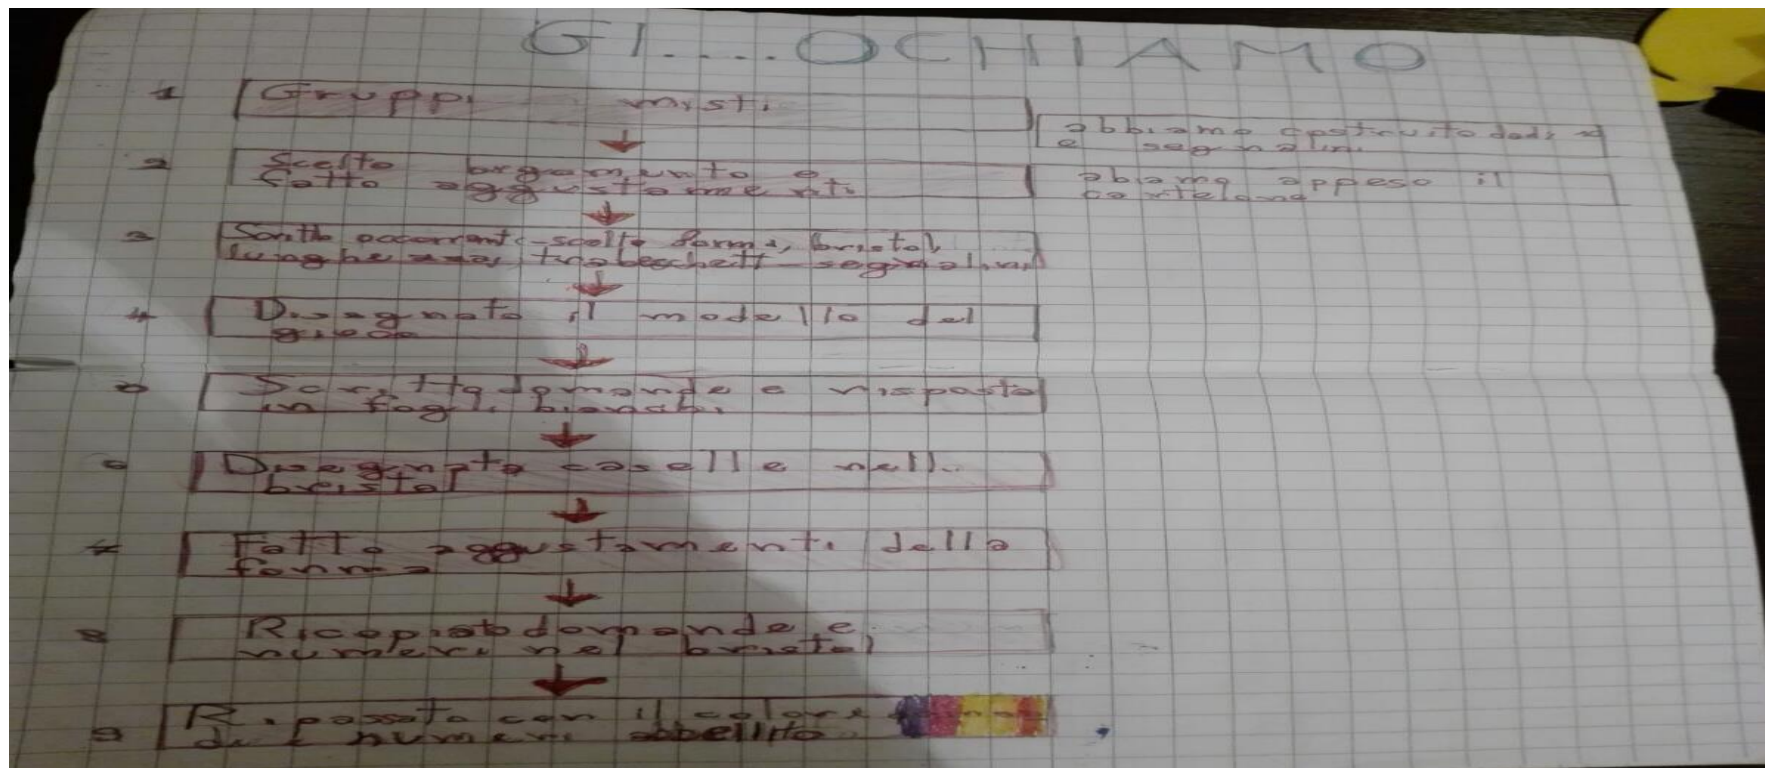 GI....OCHIAMO
1 Gruppi misti
2 Scelto argomento e
fatto aggustamenti
3 Scritto occorrente-scelta forma, bristol,
lunghezza, segnalini
4 Disegnato il modello del
gioco
Scritto domande e risposta
in fogli bianchi
Disegnato caselle nell..
breistol
Fatto aggustamenti della
forma
8 Ricopiato domande e
numeri nel bristol
9 Ripassato con il colore
numeri abbellito
abbiamo costruito dadi
e segnalini
abiamo appeso il
cartelone